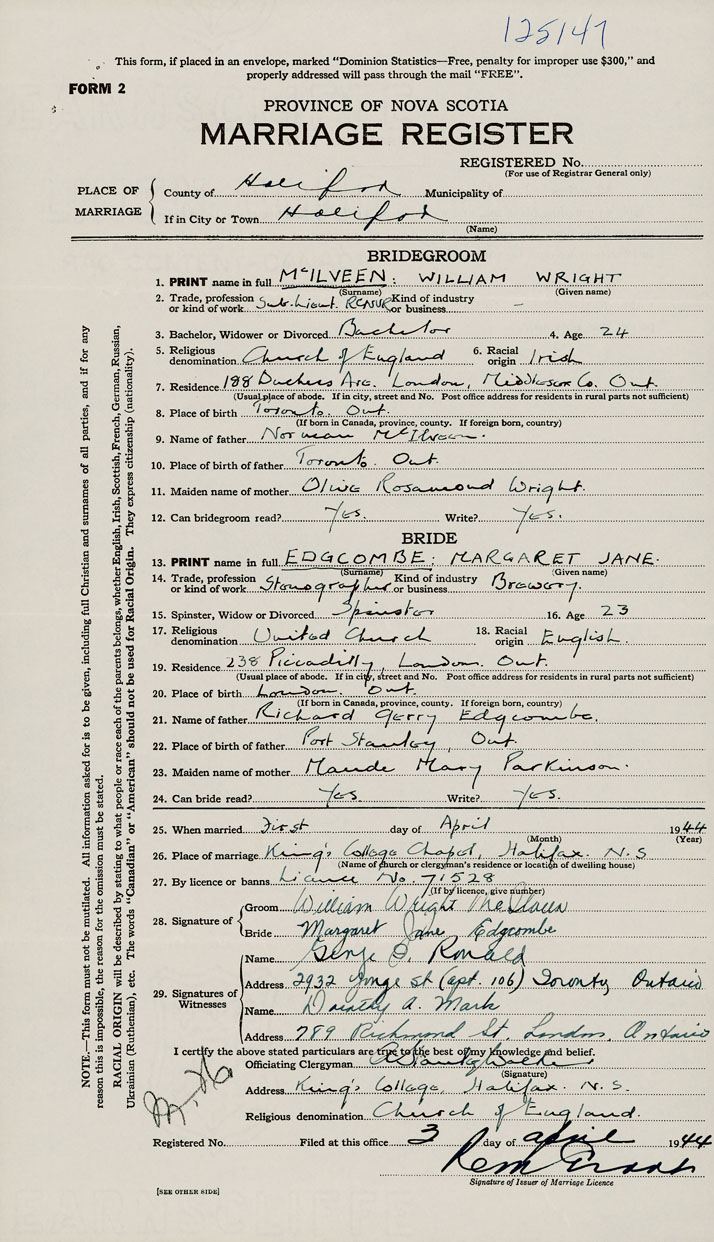 125147
This form, if placed in an envelope, marked "Dominion Statistics—Free, penalty for improper use $300," and
properly addressed will pass through the mail "FREE".
FORM 2
PROVINCE OF NOVA SCOTIA
MARRIAGE REGISTER
REGISTERED No.
(For use of Registrar General only)
PLACE OF MARRIAGE
County of Halifax Municipality of
If in City or Town Halifax
(Name)
BRIDEGROOM
1. PRINT name in full McILVEEN: WILLIAM WRIGHT
(Surname) (Given name)
2. Trade, profession or kind of work Sub. Lieut. RCNVR Kind of industry or business –
3. Bachelor, Widower or Divorced Bachelor 4. Age 24
5. Religious denomination Church of England 6. Racial origin Irish
7. Residence 188 Duchess Ave. London, Middlesex Co. Ont.
(Usual place of abode. If in city, street and No. Post office address for residents in rural parts not sufficient)
8. Place of birth Toronto. Ont.
(If born in Canada, province, county. If foreign born, country)
9. Name of father Norman McIlveen.
10. Place of birth of father Toronto. Ont.
11. Maiden name of mother Olive Rosamond Wright.
12. Can bridegroom read? Yes. Write? Yes.
BRIDE
13. PRINT name in full EDGCOMBE. MARGARET JANE.
(Surname) (Given name)
14. Trade, profession or kind of work Stenographer Kind of industry or business Brewery.
15. Spinster, Widow or Divorced Spinster 16. Age 23
17. Religious denomination United Church 18. Racial origin English.
19. Residence 238 Piccadilly, London. Ont.
(Usual place of abode. If in city, street and No. Post office address for residents in rural parts not sufficient)
20. Place of birth London. Ont.
(If born in Canada, province, county. If foreign born, country)
21. Name of father Richard Gerry Edgcombe.
22. Place of birth of father Port Stanley, Ont.
23. Maiden name of mother Maude Mary Parkinson.
24. Can bride read? Yes. Write? Yes.
25. When married First day of April 1944
(Month) (Year)
26. Place of marriage King's College Chapel, Halifax. N.S
(Name of church or clergyman's residence or location of dwelling house)
27. By licence or banns Licence No. 71528
(If by licence, give number)
28. Signature of
Groom William Wright McIlveen
Bride Margaret Jane Edgcombe
29. Signatures of Witnesses
Name George Ronald
Address 2932 Yonge St (apt. 106) Toronto Ontario
Name Dorothy A. Mark
Address 789 Richmond St. London, Ontario
I certify the above stated particulars are true to the best of my knowledge and belief.
Officiating Clergyman
(Signature)
Address King's College, Halifax. N.S.
Religious denomination Church of England.
Registered No. Filed at this office 3 day of april 1944
Signature of Issuer of Marriage Licence
[SEE OTHER SIDE]
NOTE.—This form must not be mutilated. All information asked for is to be given, including full Christian and surnames of all parties, and if for any
reason this is impossible, the reason for the omission must be stated.
RACIAL ORIGIN will be described by stating to what people or race each of the parents belongs, whether English, Irish, Scottish, French, German, Russian,
Ukrainian (Ruthenian), etc. The words "Canadian" or "American" should not be used for Racial Origin. They express citizenship (nationality).